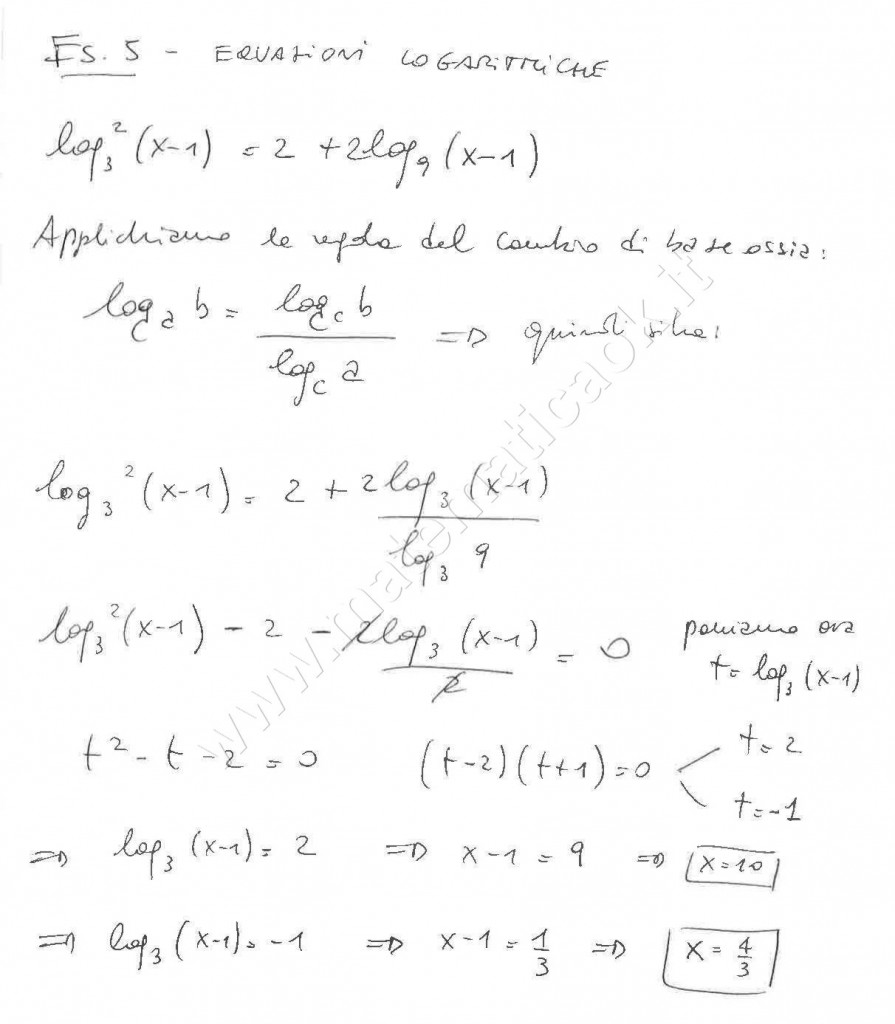 Es. 5 - EQUAZIONI LOGARITMICHE
log₃²(x-1) = 2 + 2log₉(x-1)
Applichiamo la regola del cambio di base ossia:
logₐ b = log_c b / log_c a => quindi si ha:
log₃²(x-1) = 2 + 2log₃(x-1) / log₃ 9
log₃²(x-1) - 2 - 2log₃(x-1) / 2 = 0 poniamo ora
t = log₃(x-1)
t² - t - 2 = 0 (t-2)(t+1) = 0 t = 2
t = -1
=> log₃(x-1) = 2 => x-1 = 9 => x = 10
=> log₃(x-1) = -1 => x-1 = 1/3 => x = 4/3
www.matematicaok.it